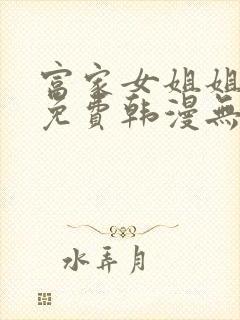 富家女姐姐
免費韩漫無
水弄月